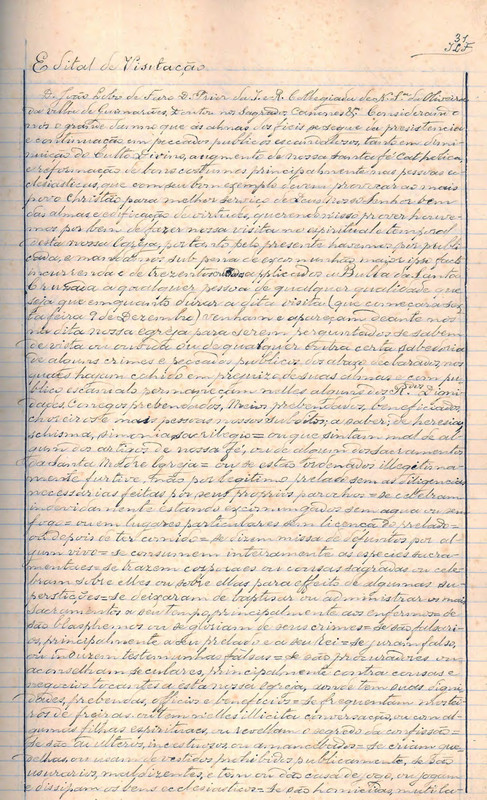 31
Edital de Visitação
D. João Lobo de Faro D. Prior da I. e R. Collegiada de N. Sra da Oliveira
da villa de Guimarães, entre nos Sagrados Canones &. Considerando
nós o grande damno que ás almas dos fieis se segue da presistencia
e continuação em peccados publicos escandalosos, tanto em dimi-
nuição do Culto Divino, augmento de nossa santa fé Catholica,
e reformação de bons costumes principalmente nas pessoas ec-
clesiasticas, que com seu bom exemplo devem provocar ao mais
povo Christão para melhor serviço de Deus nosso Senhor bem
das almas e edificação de virtudes, querendo nisso prover houve-
mos por bem de fazer nossa visita no espiritual e temporal
a esta nossa Egreja, portanto pelo presente havemos por publi-
cada, e mandamos sub pena de excommunhão maior ipso facto
incurrenda e de trezentos applicados á Bulla da Santa
Cruzada a qualquer pessoa de qualquer qualidade que
seja que emquanto durar a dita visita (que começará sex-
ta feira 9 de Dezembro) venham e apareçam deante nós
na dita nossa egreja para serem perguntados se sabem
de vista ou ouvida ou de qualquer outra certa sabedoria
de alguns crimes e peccados publicos dos abaixo declarados nos
quaes hajam cahido em prejuizo de suas almas e com pu-
blico escandalo permaneçam nelles alguns dos R.dos Digni-
dades, Conegos prebendados, Meios prebendados, beneficiados,
choreiros e mais pessoas nossos subditos; a saber; de heresia,
schisma, simonia, sacrilegio = ou que sintam mal de al-
gum dos artigos de nossa fé, ou de algum dos sacramentos
da Santa Madre Egreja = ou se estão ordenados illegitima-
mente furtive, e não por legitimo prelado sem as diligencias
necessarias feitas por seus proprios parochos = se celebram
indevidamente estando excommungados sem agua ou sem
fogo = ou em lugares particulares sem licença do prelado =
ou depois de ter comido = se dizem missa de defuntos por al-
gum vivo = se consumem inteiramente as especies sacra-
mentaes = se trazem corporaes ou cousas sagradas ou cele-
bram sobre elles ou sobre ellas para effeito de algumas su-
perstições = se deixaram de baptisar ou administrar os mais
Sacramentos a seu tempo, principalmente aos enfermos = se
são blasphemos ou se gloriam de seus crimes = se são falsari-
os, principalmente a seu prelado e a seu Rei = se juram falso,
ou induzem testemunhas falsas = se são procuradores ou
aconselham seculares, principalmente contra causas e
negocios tocantes a esta nossa egreja, aonde tem suas digni-
dades, prebendas, officios e beneficios = se frequentam mostei-
ros de freiras ou tem nelles illicita conversação, ou com al-
gumas filhas espirituaes, ou revellam o segredo da confissão =
se são adulteros, incestuosos ou amancebados = se criam gue-
delhas, ou usam de vestidos prohibidos, publicamente, se são
usurarios, maldizentes, e tem ou dão casa de jogo, ou jogam
e dissipam os bens ecclesiasticos = se são homicidas, mutila-